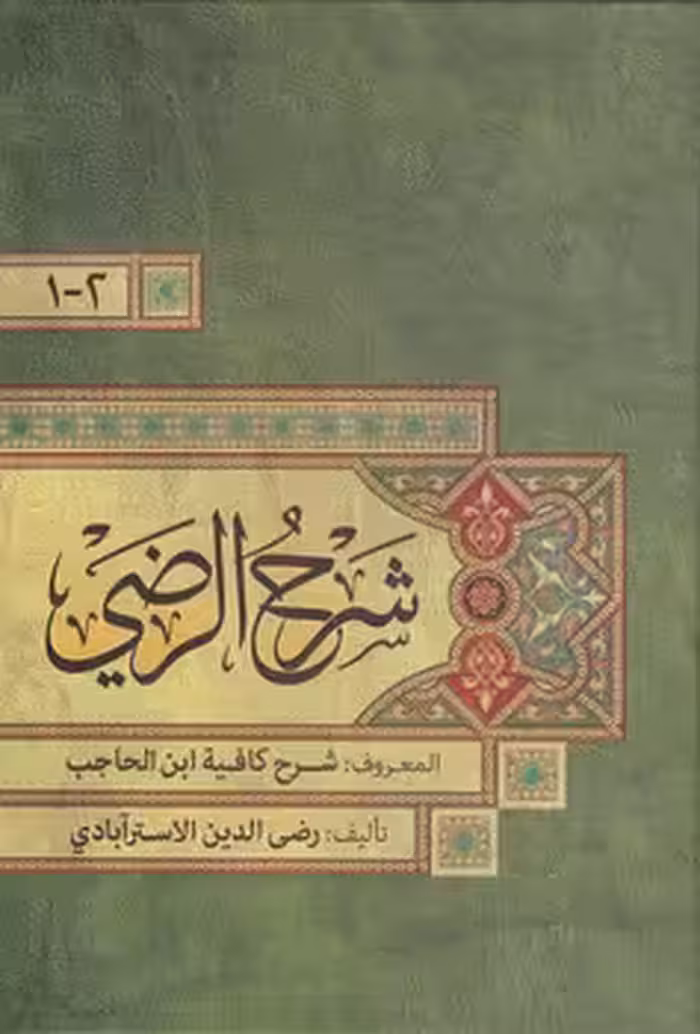 ١-٢
شرح الرضي
المعروف: شرح كافية ابن الحاجب
تأليف: رضى الدين الاسترآبادي